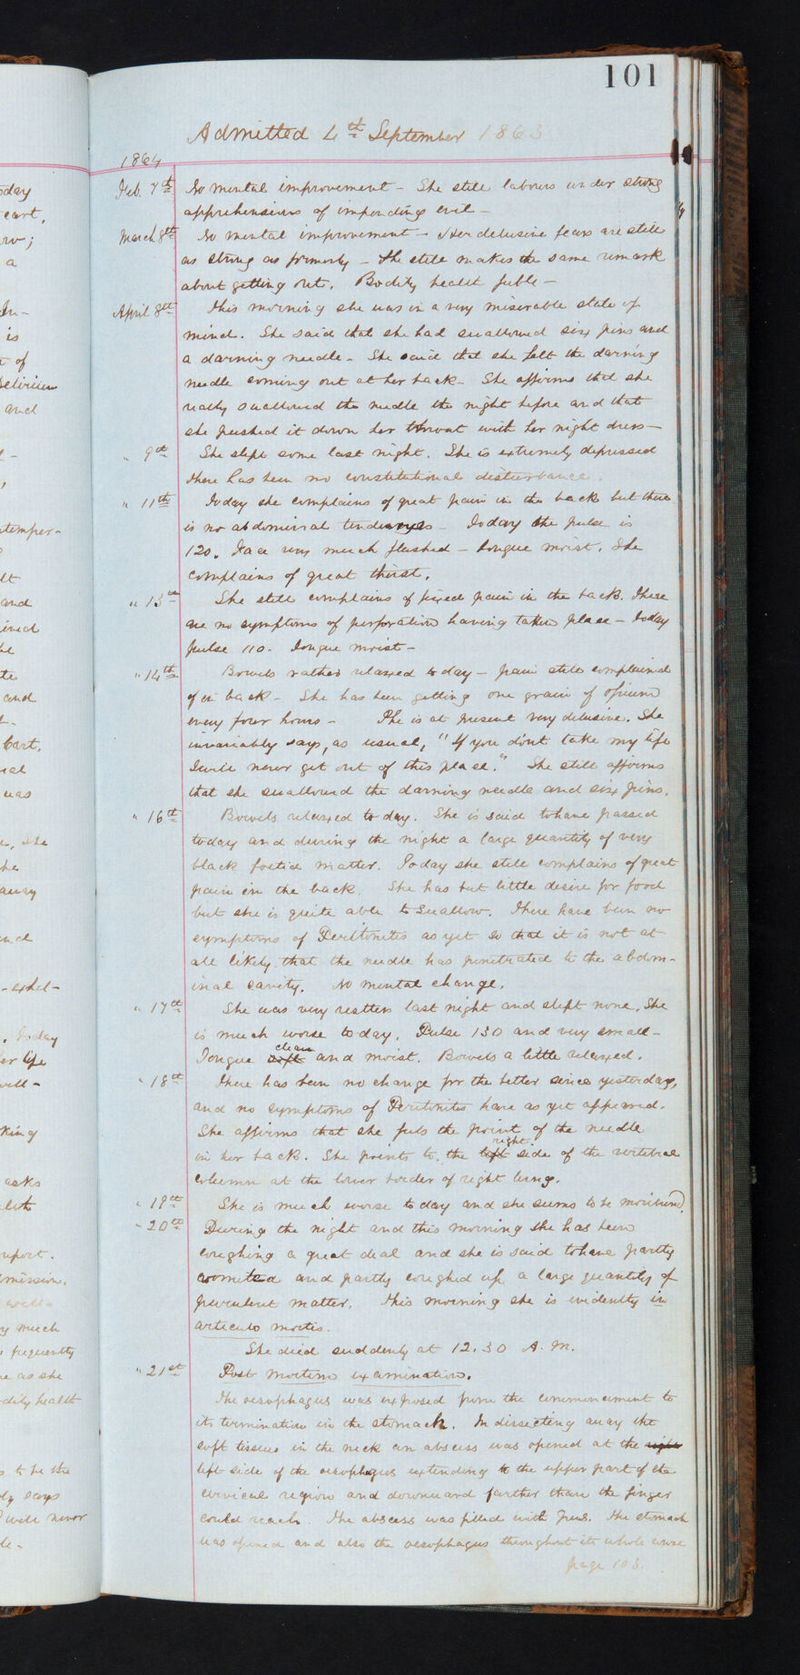 101
Admitted 4th September 1863
1864
Feb. 7th No mental improvement – She still labours under strong
apprehensions of impending evil –
March 8th No mental improvement – Her delusive fears are still
as strong as formerly – She still makes the same remark
about getting out. Bodily health feeble –
April 8th This morning she was in a very miserable state of
mind. She said that she had swallowed six pins and
a darning needle – She said that she felt the darning
needle coming out at her back – She affirms that she
really swallowed the needle the night before and that
she pushed it down her throat with her night dress –
" 9th She slept some last night. She is extremely depressed
there has been no constitutional disturbance.
" 11th Today she complains of great pain in the back but there
is no abdominal tenderness – Today the pulse is
120. Face very much flushed – tongue moist. She
complains of great thirst.
" 13th She still complains of fixed pain in the back. There
are no symptoms of perforation having taken place – Today
pulse 110. Tongue moist –
" 14th Bowels rather relaxed to day – pain still complained
of in back – She has been getting one grain of opium
every four hours – She is at present very delusive. She
invariably says, as usual, "If you don't take my life
I will never get out of this place." She still affirms
that she swallowed the darning needle and six pins.
" 16th Bowels relaxed to day. She is said to have passed
today and during the night a large quantity of very
black foetid matter. Today she still complains of great
pain in the back. She has but little desire for food
but she is quite able to swallow. There have been no
symptoms of Peritonitis as yet so that it is not at
all likely, that the needle has penetrated to the abdom-
inal cavity. No mental change.
" 17th She was very restless last night and slept none. She
is much worse to day. Pulse 130 and very small –
clean
Tongue soft and moist. Bowels a little relaxed.
" 18th There has been no change for the better since yesterday,
and no symptoms of Peritonitis have as yet appeared.
She affirms that she feels the point of the needle
right
in her back. She points to, the left side of the vertebral
column at the lower border of right lung.
" 19th She is much worse to day and she seems to be moribund.
" 20th During the night and this morning she has been
coughing a great deal and she is said to have partly
vomited and partly coughed up a large quantity of
purulent matter. This morning she is evidently in
articulo mortis.
She died suddenly at 12.30 A.M.
" 21st Post mortem examination.
The oesophagus was exposed from the commencement to
its termination in the stomach. In dissecting away the
soft tissues in the neck an abscess was opened at the right
left side of the oesophagus extending to the upper part of the
cervical region and downward farther than the finger
could reach. The abscess was filled with pus. The stomach
was opened and also the oesophagus throughout its whole course
page 103.